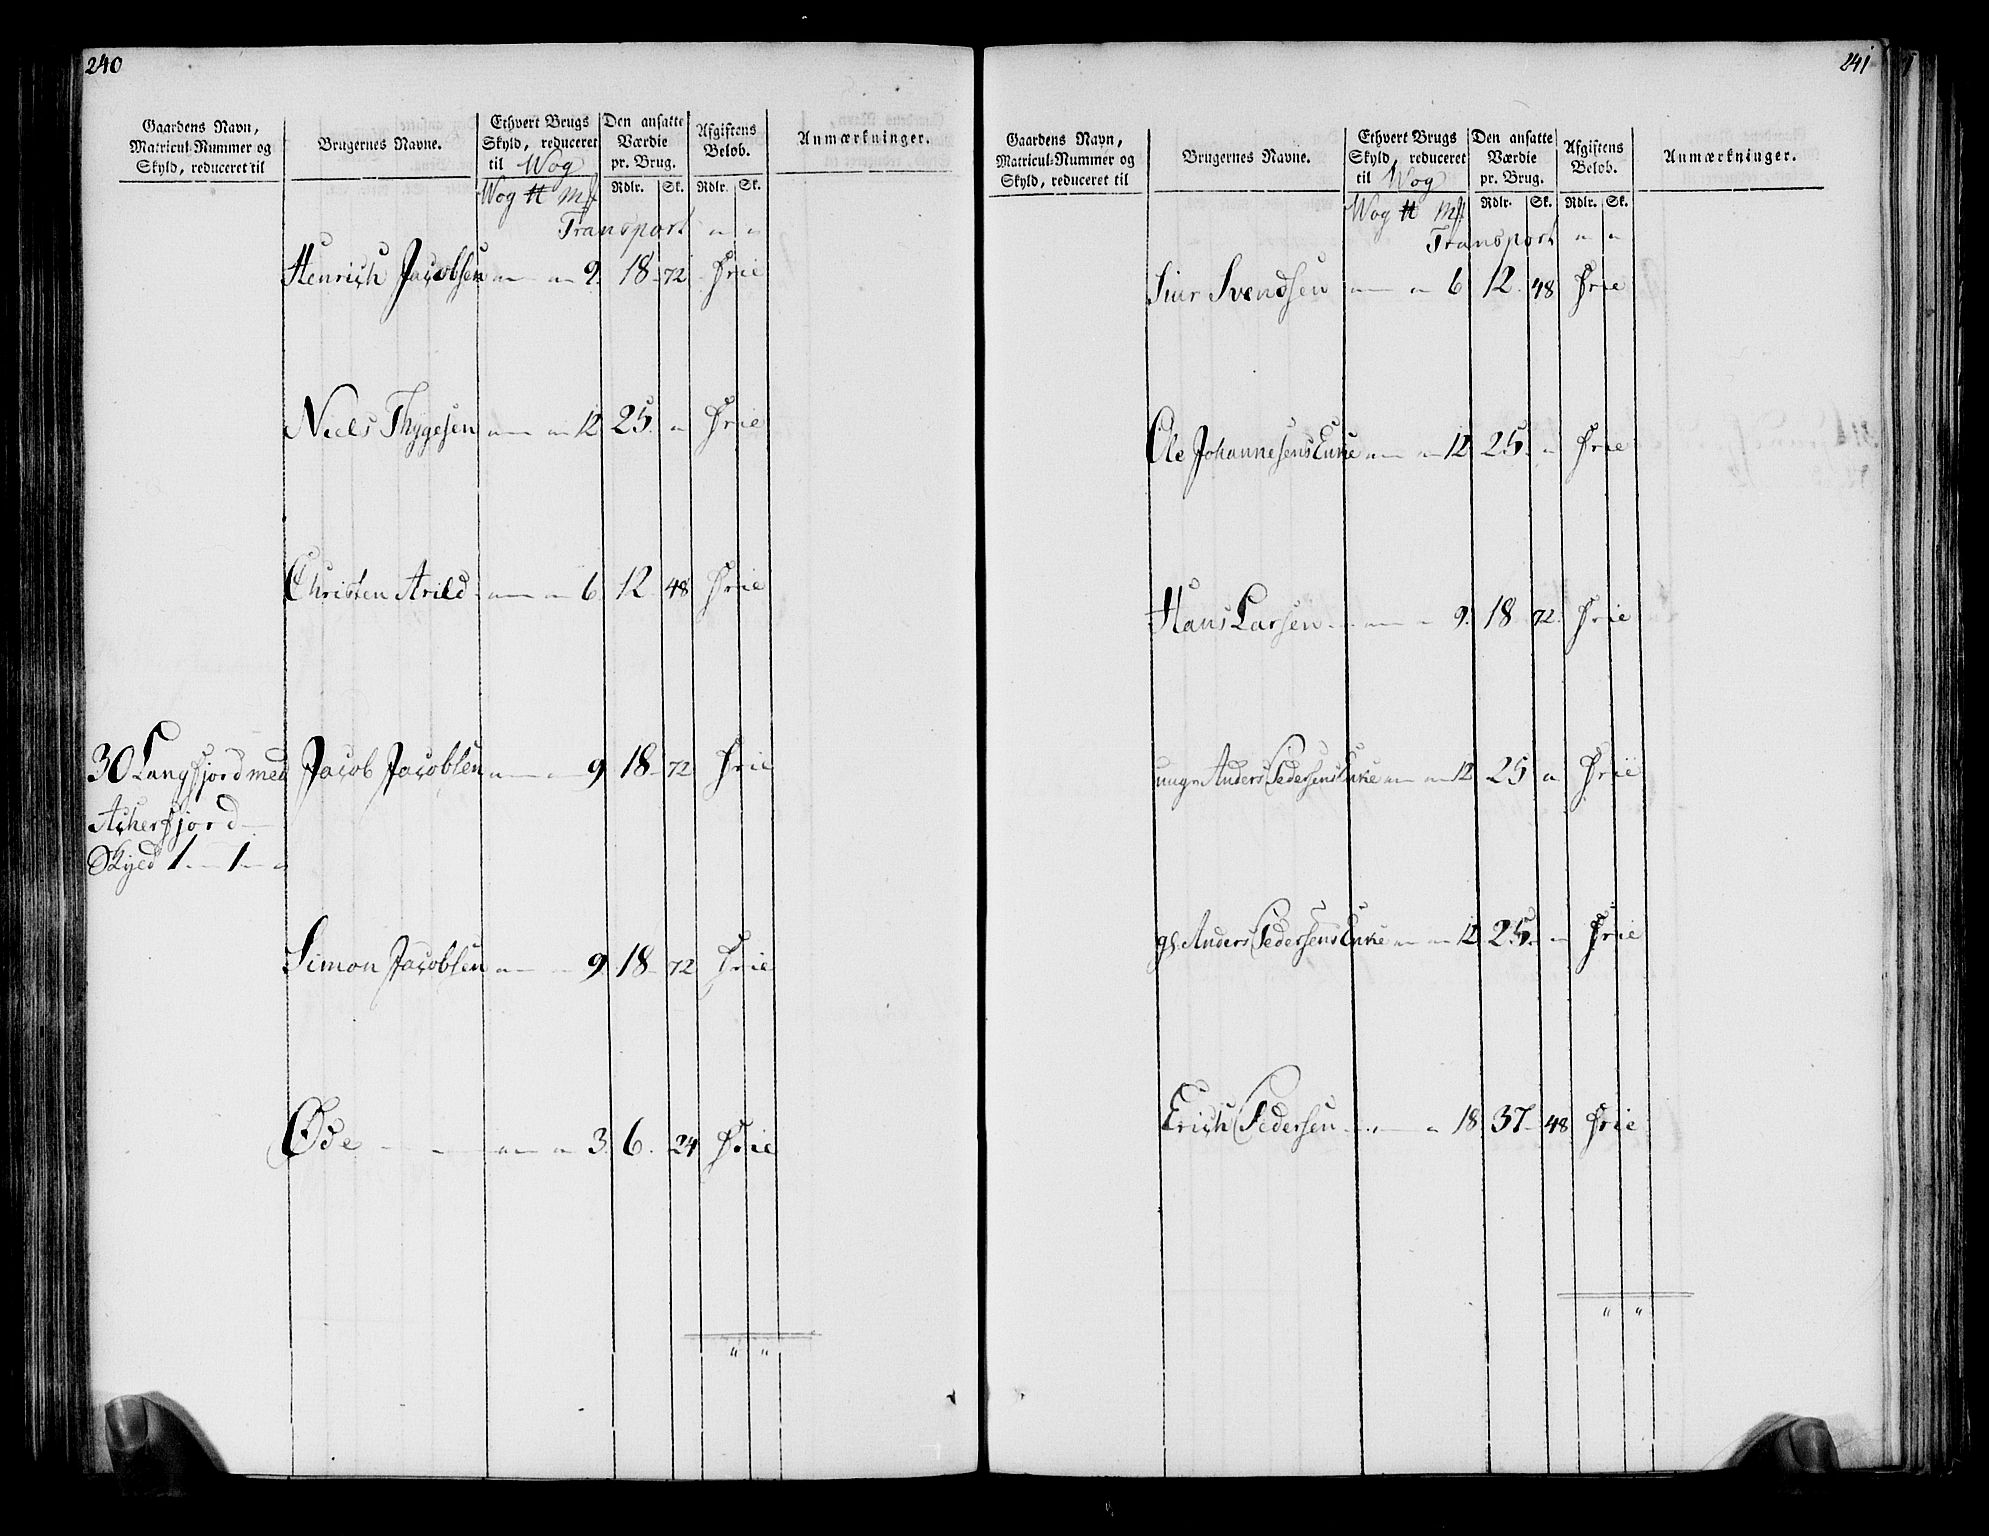 240
Gaardens Navn,
Matricul-Nummer og
Skyld, reduceret til
Brugernes Navne.
Ethvert Brugs
Skyld, reduceret
til Wog
Den ansatte
Værdie
pr. Brug.
Afgiftens
Beløb.
Anmærkninger.
Wog ℔ mƒ
Rdlr. Sk. Rdlr. Sk.
Transport " "
Henrich Jacobsen " — " 9. 18 72 Frie
Niels Thygesen " — " 12 25. " Frie
Christen Arild " — " 6. 12 48 Frie
30 Langfjord med Jacob Jacobsen " — " 9 18 72 Frie
Acherfjord
Skyld 1 — 1 — "
Simon Jacobsen " — " 9 18 72 Frie
Øde " — " 3. 6. 24 Frie
" "
241
Gaardens Navn,
Matricul-Nummer og
Skyld, reduceret til
Brugernes Navne.
Ethvert Brugs
Skyld, reduceret
til Wog
Den ansatte
Værdie
pr. Brug.
Afgiftens
Beløb.
Anmærkninger.
Wog ℔ mƒ
Rdlr. Sk. Rdlr. Sk.
Transport " "
Siur Svendsen " — " 6 12. 48 Frie
Ole Johannesens Enke " — " 12 25. " Frie
Hans Larsen " — " 9. 18 72. Frie
ungr Anders Pedersens Enke " — " 12 25 " Frie
gl. Anders Pedersens Enke " — " 12 25. " Frie
Erich Pedersen " — " 18. 37 48 Frie
" "